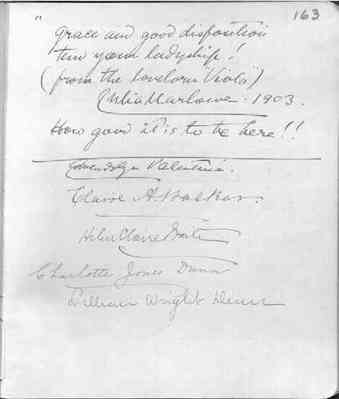 163
"
grace and good disposition
'tend your ladyship!
(from the lovelorn "Viola")
Julia Marlowe. 1903.
How good it is to be here!!
Gwendolyn Valentine.
Claire A.
Helen Claire
Charlotte Jones Dunn
Lillian Wright